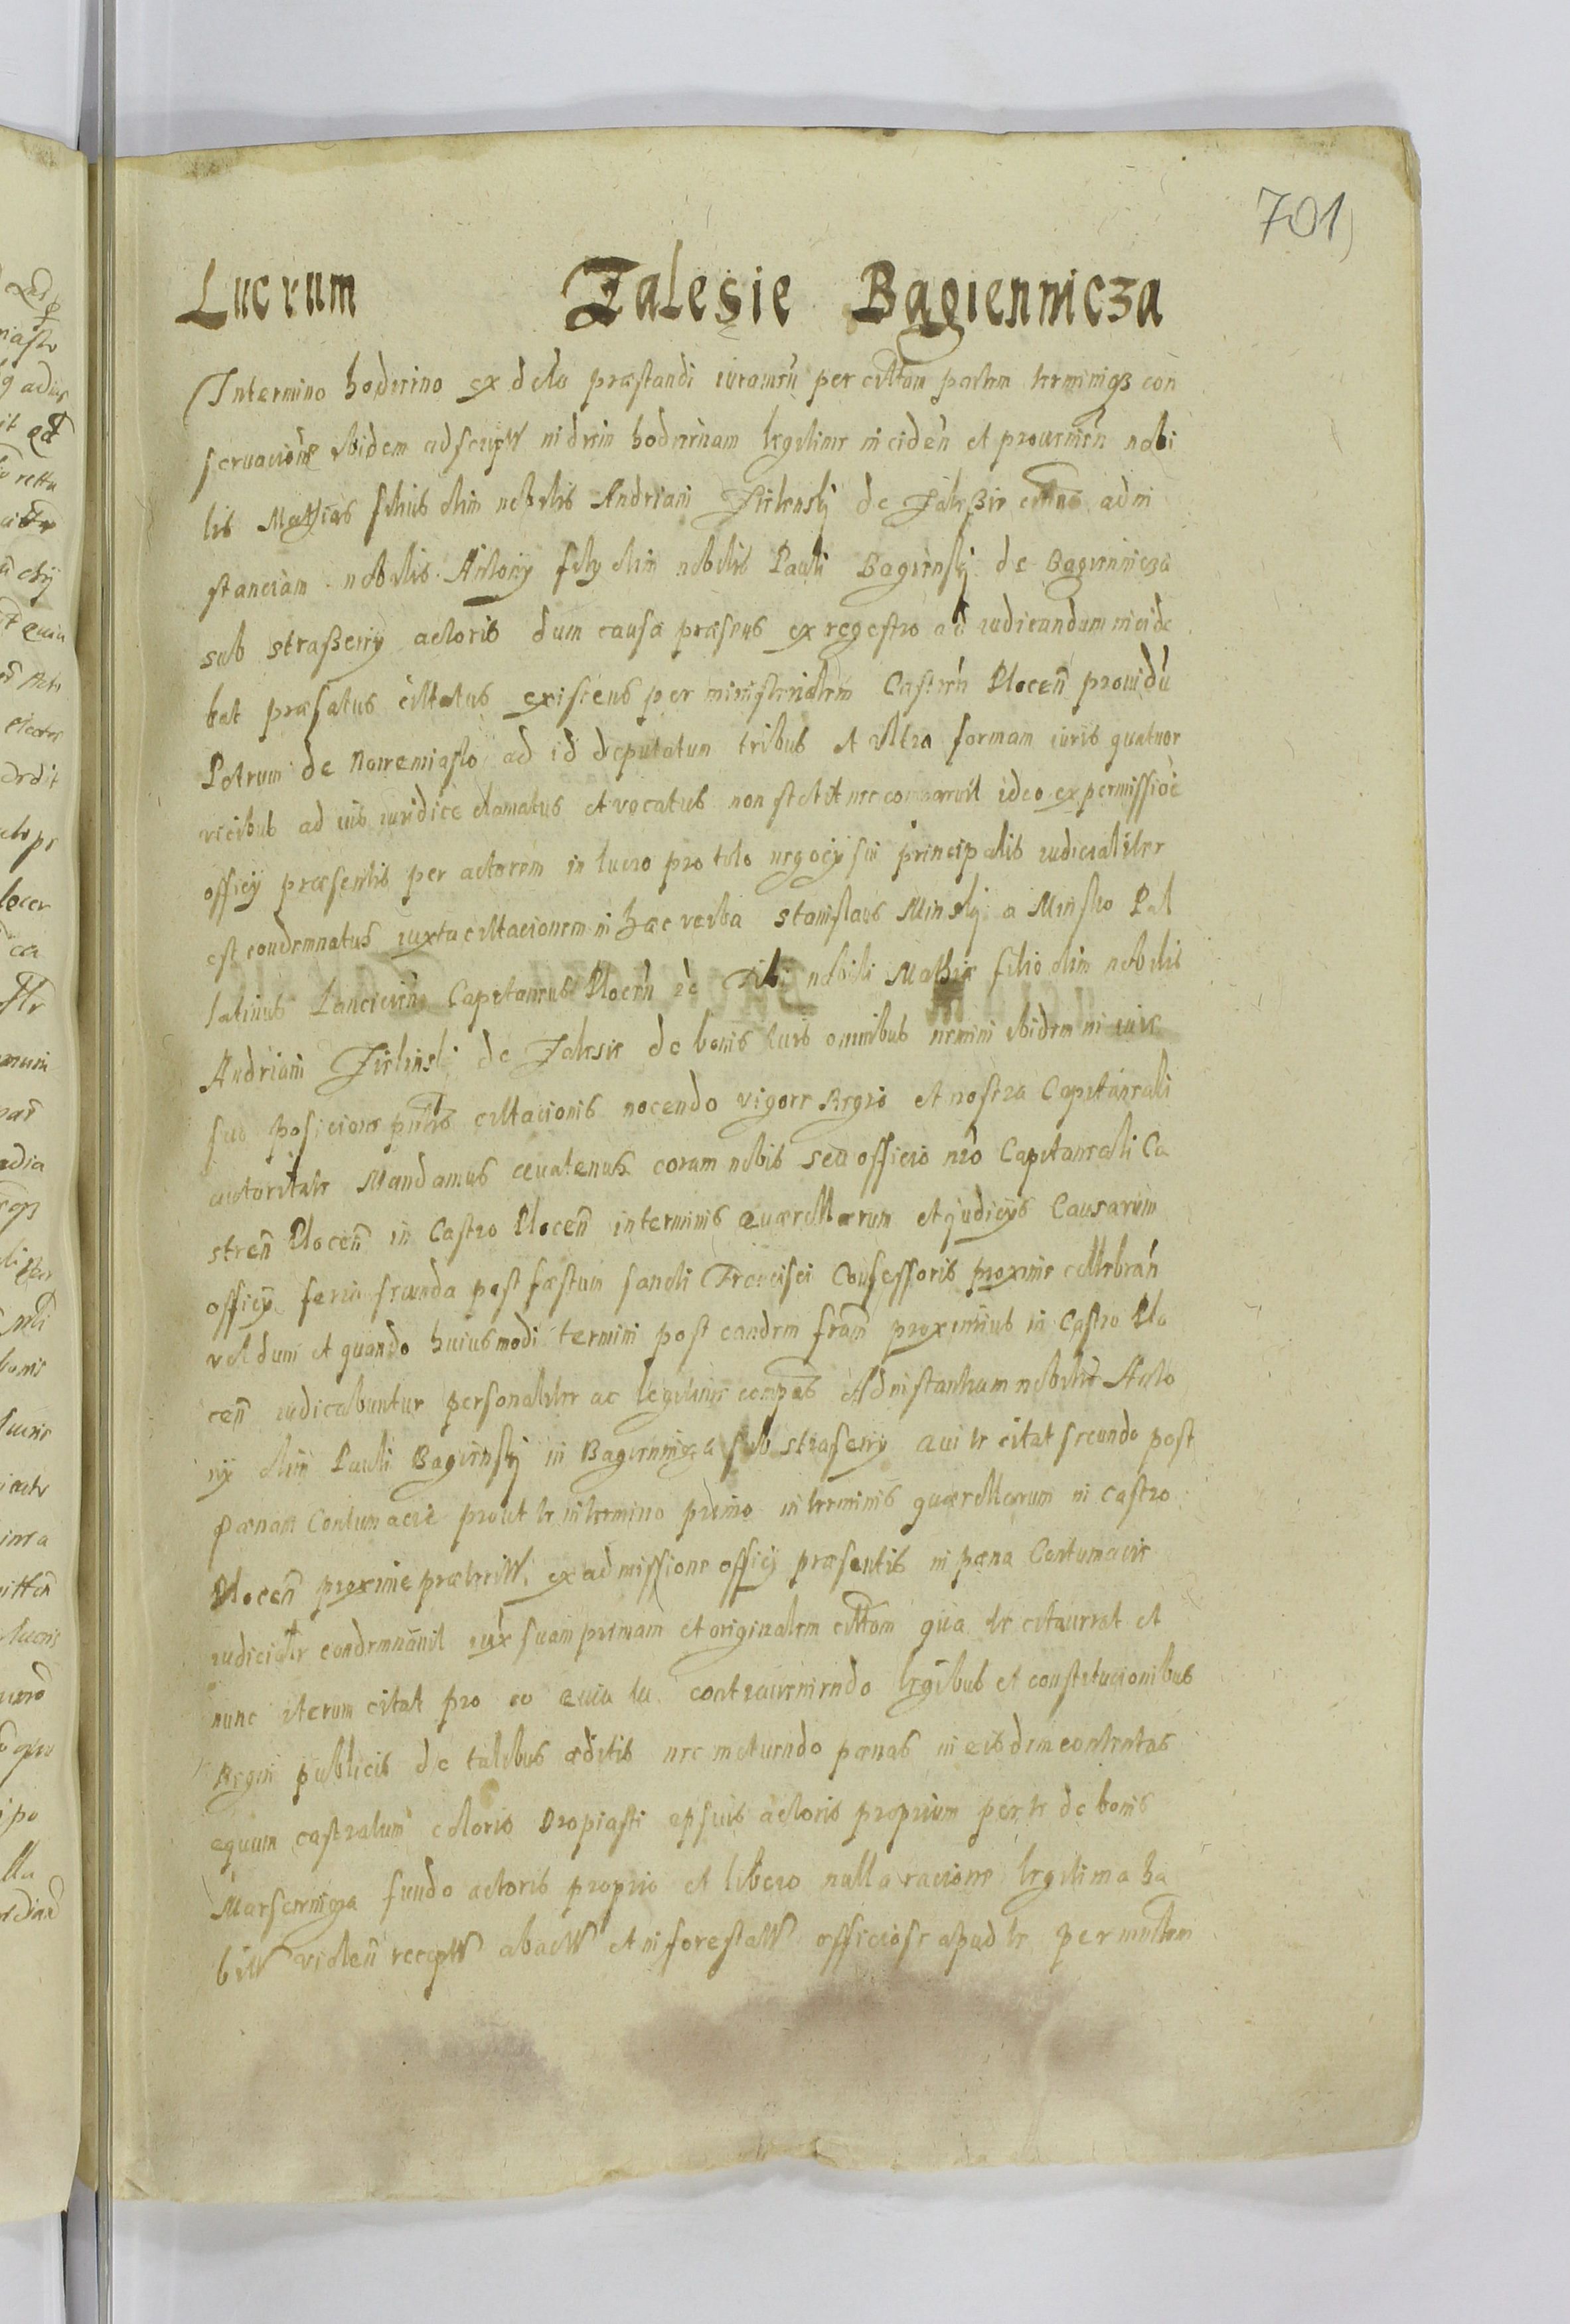 701
Lucrum Zalesie Bagiennicza
In termino hodierno ex dcto præstandi iuramtū per cittam partem terminiqȝ con
servacione ibidem adscript in diem hodiernam legitime inciden et provenien nobi
lis Mathias filius olim nobilis Andriani Zielensky de Zaleßie cittus ad in
stanciam nobilis Antony fily olim nobilis Pauli Bagiensky de Bagiennicza
sub straßewy actoris dum causa præsens ex regestro ad iudicandum incide
bat præfatus cittatus existens per ministerialem Castren Plocen providū
Petrum de Nowemiasto ad id deputatum tribus et ultra formam iuris quatuor
vicibus ad ius iuridice clamatus et vocatus non stetit nec comparuit ideo ex permissioe
officy præsentis per actorem in lucro pro toto negocy sui principalis iudicialiter
est condemnatus iuxta cittacionem in hæc verba Stanislaus Minsky a Minsko Pal
latinus Lancicien Capitaneus Plocen ec Tibi nobili Mathie filio olim nobilis
Andriani Zielinski de Zalesie de bonis tuis omnibus nemini ibidem in iure
suo posicione pntis cittacionis nocendo vigore Regio et nostra Capitaneali
autoritate Mandamus quatenus coram nobis seu officio nro Capitaneali Ca
stren Plocen in Castro Plocen in terminis quærellarum et judicys Causarum
officy feria secunda post fæstum sancti Francisci Confessoris proxime cellebran
vel dum et quando huiusmodi termini post eandem fram proximius in Castro Plo
cen iudicabuntur personaliter ac legitime compas Ad instantiam nobilis Anto
ny olim Pauli Bagiensky in Bagiennicza sub strasewy qui te citat secundo post
pænam Contumacie prout te in termino primo in terminis quærellarum in castro
Plocen proxime præterit ex admissione officy præsentis in pæna Contumacie
iudicialtr condemnavit iux suam primam et originalem cittam qua te citaverat et
nunc iterum citat pro eo quia tu contraveniendo legibus et constitucionibus
Regni publicis de talibus æditis nec metuendo pænas in eisdem contentas
equum castratum coloris Dropiasti ipsius actoris proprium per te de bonis
fundo actoris proprio et libero nulla racione legitima ha
bit violen recept abact et inforestatt officiose apud te per multum